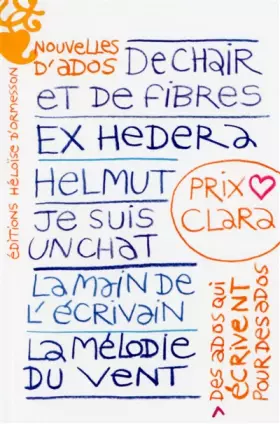 NOUVELLES
D'ADOS
DE CHAIR
ET DE FIBRES
EX HEDERA
HELMUT
JE SUIS
UN CHAT
LA MAIN DE
L'ÉCRIVAIN
LA MÉLODIE
DU VENT
PRIX
CLARA
>DES ADOS QUI
ÉCRIVENT
POUR DES ADOS
ÉDITIONS HÉLOÏSE D'ORMESSON